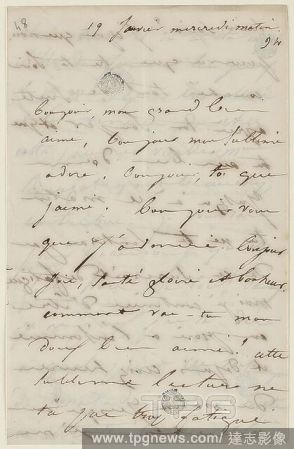 48
19 janvier mercredi matin
9 h
Bonjour mon grand bien
aimé, bonjour mon sublime
adoré, bonjour, toi que
j'aime. bonjour vous
que j'admire bonjour
joie, santé gloire et bonheur.
comment vas-tu mon
doux bien aimé? cette
sublime lecture ne
t'a pas trop fatigué
www.tpgnews.com / 達志影像